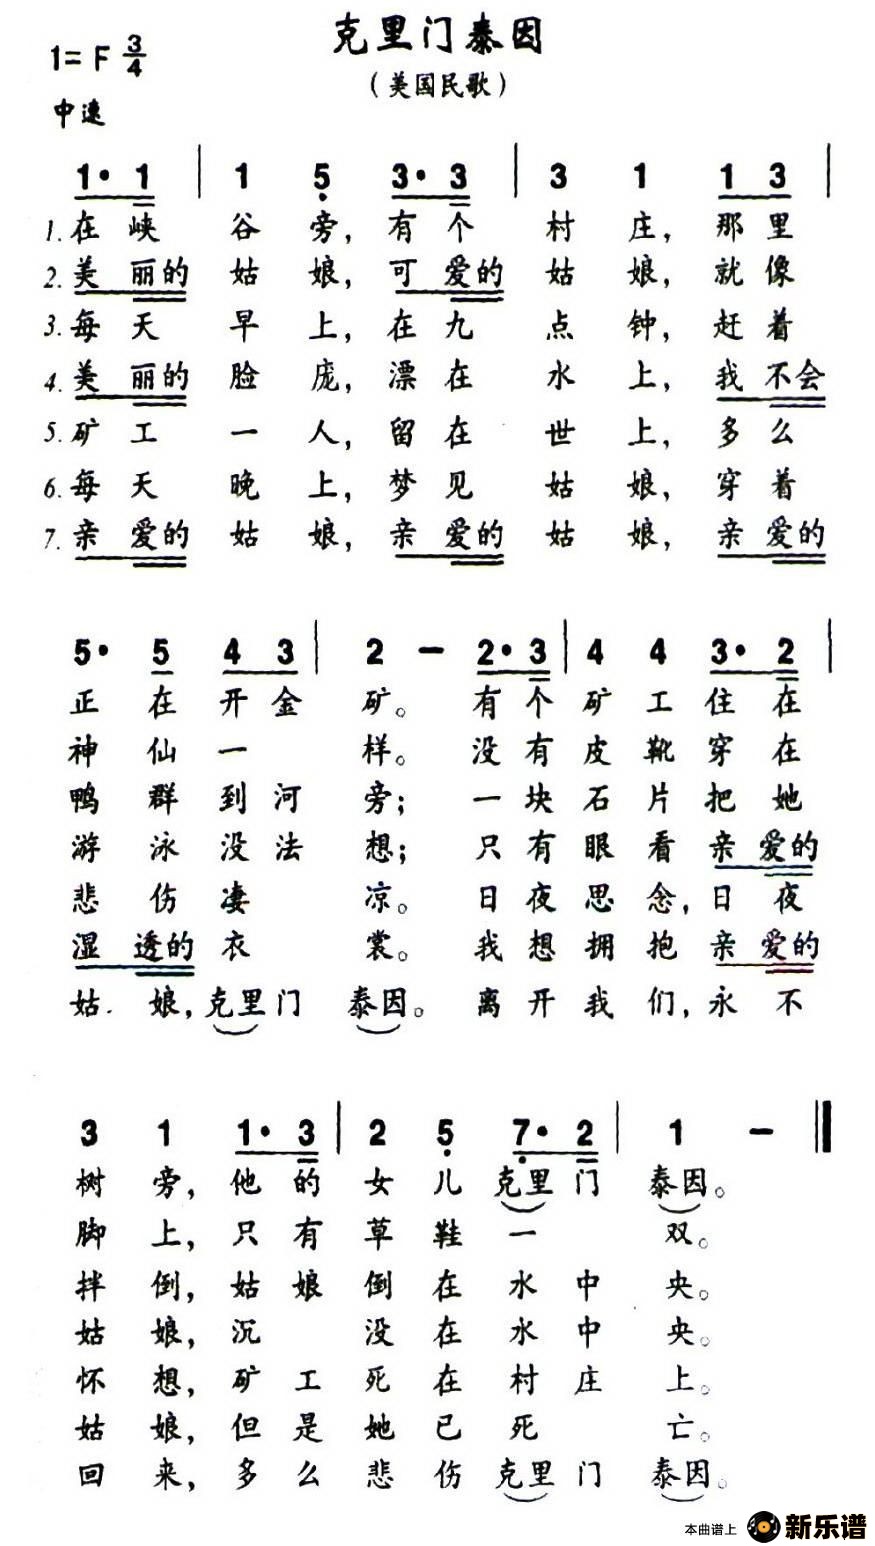 克里门泰因
1= F 3/4
（美国民歌）
中速
1· 1 | 1 5 3· 3 | 3 1 1 3 |
1.在峡谷旁，有个村庄，那里
2.美丽的姑娘，可爱的姑娘，就像
3.每天早上，在九点钟，赶着
4.美丽的脸庞，漂在水上，我不会
5.矿工一人，留在世上，多么
6.每天晚上，梦见姑娘，穿着
7.亲爱的姑娘，亲爱的姑娘，亲爱的
5· 5 4 3 | 2 － 2· 3 | 4 4 3· 2 |
正在开金矿。有个矿工住在
神仙一样。没有皮靴穿在
鸭群到河旁；一块石片把她
游泳没法想；只有眼看亲爱的
悲伤凄凉。日夜思念，日夜
湿透的衣裳。我想拥抱亲爱的
姑娘，克里门泰因。离开我们，永不
3 1 1· 3 | 2 5 7· 2 | 1 － ‖
树旁，他的女儿克里门泰因。
脚上，只有草鞋一双。
拌倒，姑娘倒在水中央。
姑娘，沉没在水中央。
怀想，矿工死在村庄上。
姑娘，但是她已死亡。
回来，多么悲伤克里门泰因。
本曲谱上 新乐谱